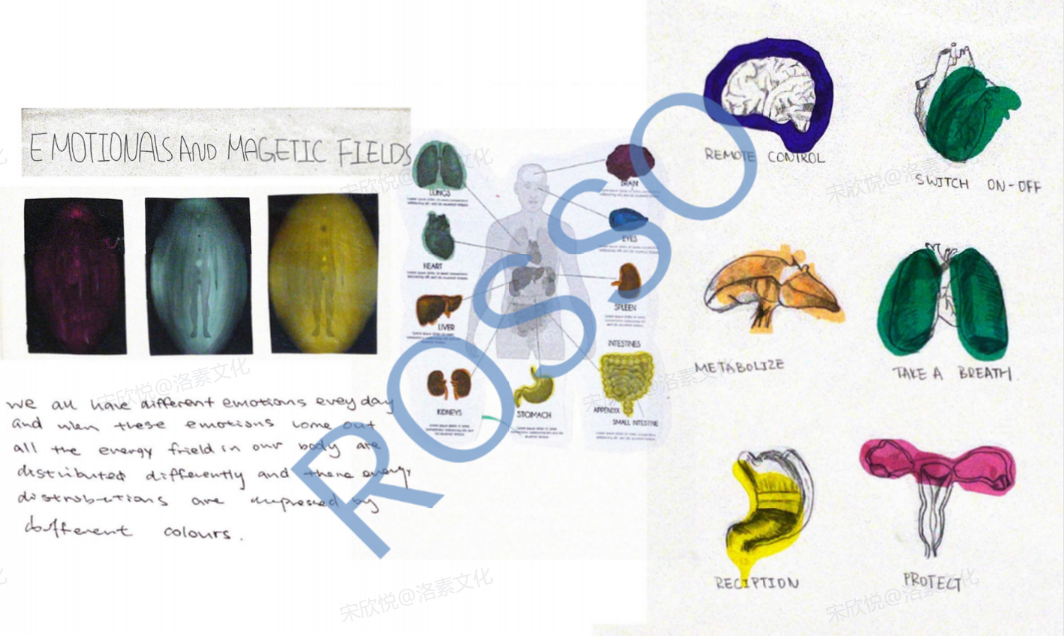 EMOTIONALS AND MAGETIC FIELDS
we all have different emotions every day
and when these emotions come out
all the energy frield in our body are
distributed differently and these energy
distrobutions are expressed by
different colours.
LUNGS
HEART
LIVER
KIDNEYS
STOMACH
BRAIN
EYES
SPLEEN
INTESTINES
APPENDIX
SMALL INTESTINE
REMOTE CONTROL
SWITCH ON-OFF
METABOLIZE
TAKE A BREATH.
RECIPTION
PROTECT
ROSSO
宋欣悦@洛素文化
宋欣悦@洛素文化
宋欣悦@洛素文化
宋欣悦@洛素文化
宋欣悦@洛素文化
宋欣悦@洛素文化